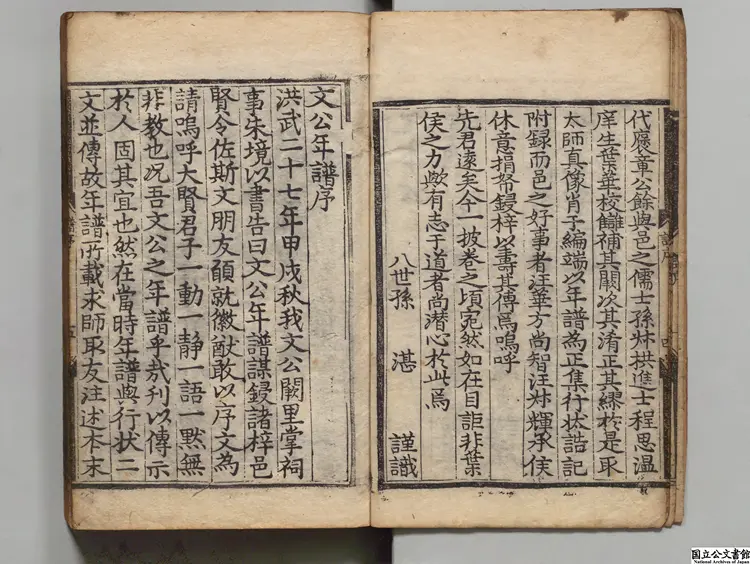 代褒章公餘與邑之儒士孫叔拱進士程思温
庠生葉華校讎補其闕次其淆正其繆於是取
太師真像肖于編端以年譜為正集行狀誥記
附録而邑之好事者汪華方尚智汪叔輝承侯
休意捐帑鋟梓以壽其傳焉嗚呼
先君遠矣今一披卷之頃宛然如在目詎非葉
侯之力歟有志于道者尚潜心於此焉
八世孫 湛 謹識
文公年譜序
洪武二十七年甲戌秋我文公闕里掌祠
事朱境以書告曰文公年譜謀鋟諸梓邑
賢令佐斯文朋友頗就徽猷敢以序文為
請嗚呼大賢君子一動一静一語一黙無
非教也况吾文公之年譜乎哉刊以傳示
於人固其宜也然在當時年譜與行状二
文並傳故年譜所載求師取友注述本末
国立公文書館
National Archives of Japan